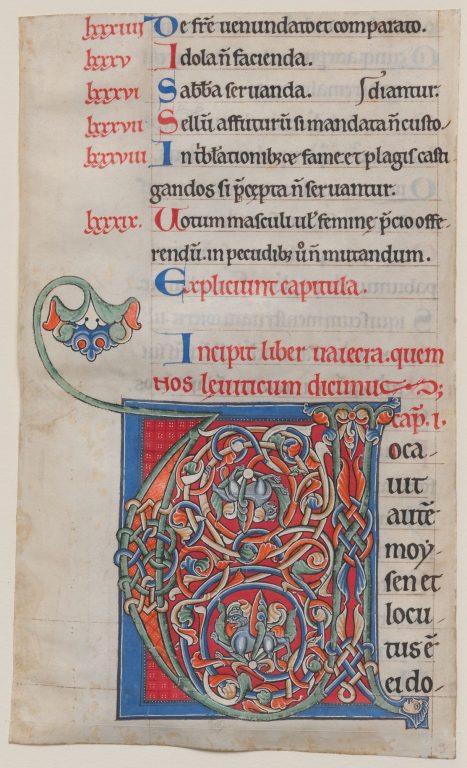 lxxxiiii De fr̄e uenundato et comparato.
lxxxv Idola n̄ facienda.
lxxxvi Sabb̄a seruanda. ſdiantur.
lxxxvii Sellū affuturū si mandata n̄ custo-
lxxxviii In t̄blationibꝫ & fame et plagis casti
gandos si p̄cepta n̄ seruantur.
lxxxix. Uotum masculi ul̄ femine p̄cio offe-
rendū. in pecudibꝫ ů n̄ mutandum.
Expliciunt capitula.
Incipit liber uaiecra. quem
nos leviticum dicimus;
cap̄. i.
V
oca-
uit
autē
moy-
sen et
locu-
tus ē
ei do-